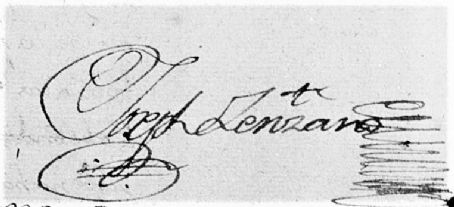 Joseph Lenzano